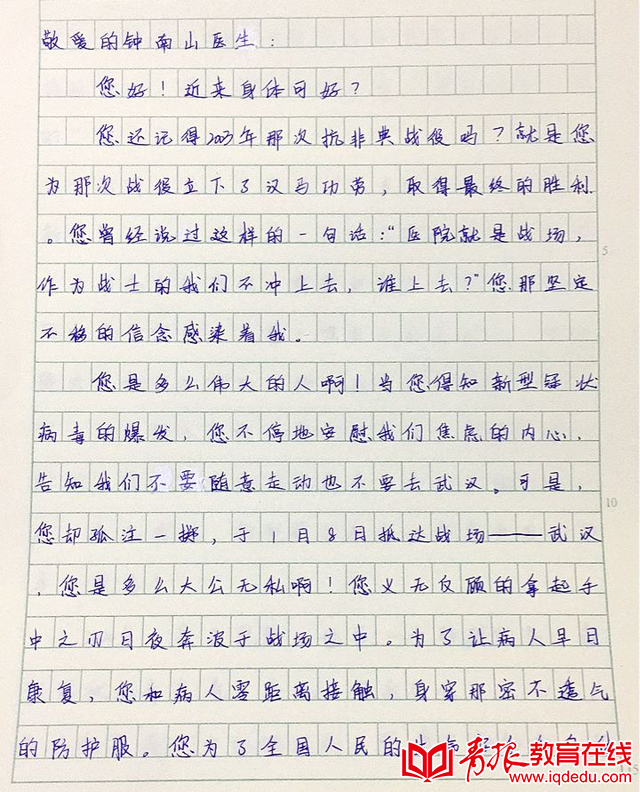 敬爱的钟南山医生：
您好！近来身体可好？
您还记得2003年那次抗非典战役吗？就是您
为那次战役立下了汉马功劳，取得最终的胜利
。您曾经说过这样的一句话：“医院就是战场，
作为战士的我们不冲上去，谁上去？”您那坚定
不移的信念感染着我。
您是多么伟大的人啊！当您得知新型冠状
病毒的爆发，您不停地安慰我们焦虑的内心，
告知我们不要随意走动也不要去武汉。可是，
您却孤注一掷，于1月8日抵达战场——武汉
，您是多么大公无私啊！您义无反顾的拿起手
中之刃日夜奔波于战场之中。为了让病人早日
康复，您和病人零距离接触，身穿那密不透气
的防护服。您为了全国人民的
5
10
15
青报教育在线
www.iqdedu.com